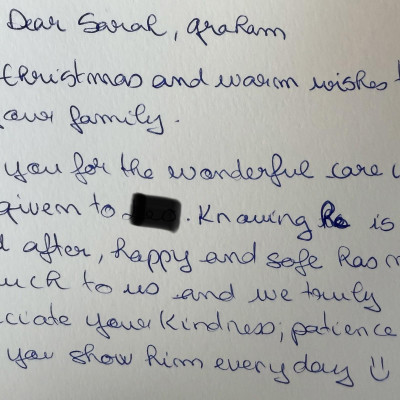 Dear Sarah, Graham
Christmas and warm wishes
your family.
you for the wonderful care
given to . Knowing he is
after, happy and safe has
uch to us and we truly
ciate your kindness, patience
you show him everyday